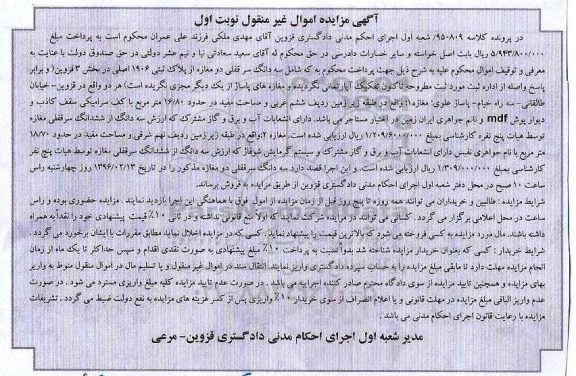 آگهی مزایده اموال غیر منقول نوبت اول
در پرونده کلاسه ۹۵۰۸۰۹/ شعبه اول اجرای احکم مدنی دادگستری قزوین آقای مهدی ملکی فرزند علی عمران محکوم است به پرداخت مبلغ
۵/۹۴۳/۸۰۰/۰۰۰ ریال بابت اصل خواسته و سایر خسارات دادرسی در حق محکوم له آقای سعید سعادتی نیا و نیم عشر دولتی در حق صندوق دولت با عنایت به
معرفی و توقیف اموال محکوم علیه به شرح ذیل جهت پرداخت محکوم به که شامل سه دانگ سر قفلی دو مغازه از پلاک ثبتی ۱۹۰۶ اصلی در بخش ۳ قزوین( و برابر
پاسخ واصله از اداره ثبت مورد ثبت مطروحه تاکنون تفکیک آپارتمانی نگردیده و مغازه های پاساژ از یک دیگر مجزی نگردیده است) هر دو واقع در قزوین- خیابان
طالقانی- سه راه خیام- پاساژ علوی: مغازه۱: واقع در طبقه زیر زمین ردیف ششم غربی و مساحت مفید در حدود ۱۶/۸۰ متر مربع با کف سرامیکی سقف کاذب و
دیوار پوش mdf و نام جواهری ایران زمین در اختیار مستاجر می باشد. دارای انشعابات آب و برق و گاز مشترک که ارزش سه دانگ از ششدانگ سرقفلی مغازه
توسط هیات پنج نفره کارشناسی بمبلغ ۱/۲۰۹/۶۰۰/۰۰۰ ریال ارزیابی شده است. مغازه ۲:واقع در طبقه زیرزمین ردیف نهم شرقی و مساحت مفید در حدود ۱۸/۷۰
متر مربع با نام جواهری نفیس دارای انشعابات آب و برق و گاز مشترک و سیستم گرمایش شوفاژ که ارزش سه دانگ از ششدانگ سرقفلی مغازه توسط هیات پنج نفر
کارشناسی بمبلغ ۱/۳۰۹/۰۰۰/۰۰۰ ریال ارزیابی شده است. و این اجرا قصد دارد سه دانگ سر قفلی دو مغازه مذکور را در تاریخ ۱۳۹۶/۰۲/۱۳ روز چهارشنبه راس
ساعت ۱۰ صبح در محل دفتر شعبه اول اجرای احکام مدنی دادگستری قزوین از طریق مزایده به فروش برساند.
شرایط مزایده : طالبین و خریداران می توانند همه روزه تا پنج روز قبل از زمان مزایده از اموال فوق با هماهنگی این اجرا بازدید نمایند . مزایده حضوری بوده و راس
ساعت در محل اعلامی برگزار می گردد . کسانی می توانند در مزایده شرکت نمایند که اولا منع قانونی نداشته و در ثانی ۱۰٪ قیمت پیشنهادی خود را نقداً به همراه
داشته باشند. مال مورد مزایده به کسی فروخته می شود که بالاترین قیمت را پیشنهاد نماید . کسی که در مزایده اخلال نماید مطابق مقررات با ایشان برخورد می گردد .
شرایط خریدار : کسی که بعنوان خریدار مزایده شناخته شد بدواً نسبت به پرداخت ۱۰٪ مبلغ پیشنهادی به صورت نقدی اقدام و سپس حداکثر تا یک ماه از زمان
انجام مزایده مهلت دارد تا مابقی مبلغ مزایده را به حساب سپرده دادگستری واریز نمایند. انتقال سند در اموال غیر منقول و یا تسلیم مال در اموال منقول منوط به واریز
بهای مزایده و همچنین تایید مزایده از سوی دادگاه محترم صادر کننده اجراییه می باشد . در صورت عدم تایید مزایده کلیه مبلغ واریزی مسترد می شود . در صورت
عدم واریز الباقی مبلغ مزایده در مهلت قانونی و یا اعلام انصراف از سوی خریدار ۱۰٪ واریزی پس از کسر هزینه های مزایده به نفع دولت ضبط می گردد . تشریفات
مزایده با رعایت قانون اجرای احکام مدنی می باشد .
مدیر شعبه اول اجرای احکام مدنی دادگستری قزوین- مرعی